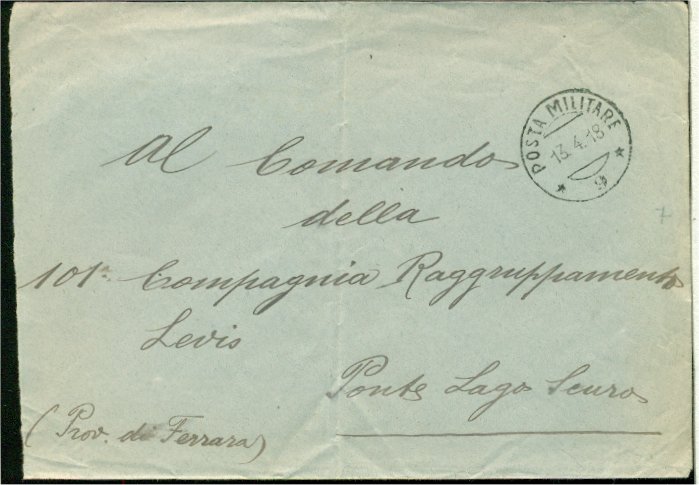 POSTA MILITARE
13.4.18
9
Al Comando
della
101ª Compagnia Raggruppamento
Levis
Ponte Lago Scuro
(Prov. di Ferrara)
7